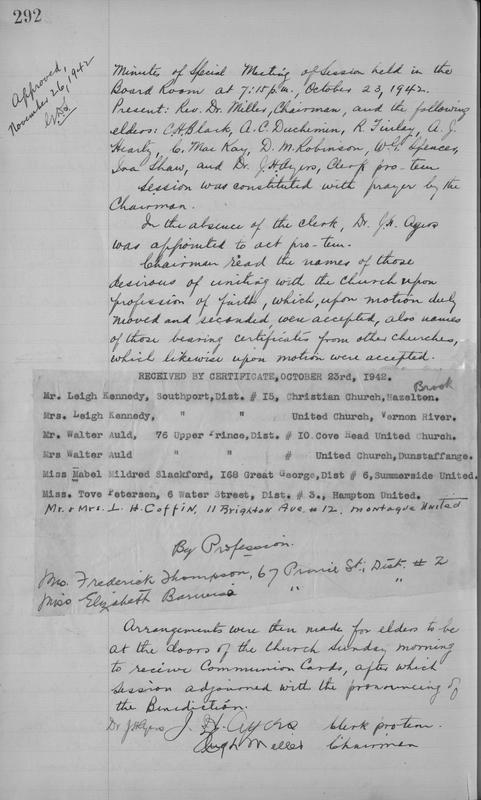 292
Approved,
November 26, 1942
Minutes of Special Meeting of Session held in the
Board Room at 7:15 p.m., October 23, 1942.
Present: Rev. Dr. Miller, Chairman, and the following
elders: C.H. Black, A.C. Duchemin, R. Finlay, A. J.
Heartz, C. MacKay, D. M. Robinson, W.G. Spencer,
Ira Shaw, and Dr. J.H. Ayers, Clerk pro-tem.
Session was constituted with prayer by the
Chairman.
In the absence of the clerk, Dr. J.H. Ayers
was appointed to act pro-tem.
Chairman read the names of those
desirous of uniting with the Church upon
profession of faith, which, upon motion duly
moved and seconded, were accepted, also names
of those bearing certificates from other churches,
which likewise upon motion were accepted.
RECEIVED BY CERTIFICATE, OCTOBER 23rd, 1942.
Brook
Mr. Leigh Kennedy, Southport, Dist. # 15, Christian Church, Hazelton.
Mrs. Leigh Kennedy, " " United Church, Vernon River.
Mr. Walter Auld, 76 Upper Prince, Dist. # 10. Cove Head United Church.
Mrs Walter Auld " " # United Church, Dunstaffange.
Miss Mabel Mildred Slackford, 168 Great George, Dist # 6, Summerside United.
Miss. Tove Petersen, 6 Water Street, Dist. # 3., Hampton United.
Mr. & Mrs. L. H. Coffin, 11 Brighton Ave. # 12, Montague United
By Profession.
Mrs. Frederick Thompson, 67 Prince St., Dist. # 2
Miss Elizabeth Barwise " "
Arrangements were then made for elders to be
at the doors of the Church Sunday morning
to receive Communion Cards, after which
Session adjourned with the pronouncing of
the Benediction.
Dr J H Ayers J. H. Ayers Clerk protem.
Hugh Miller Chairman